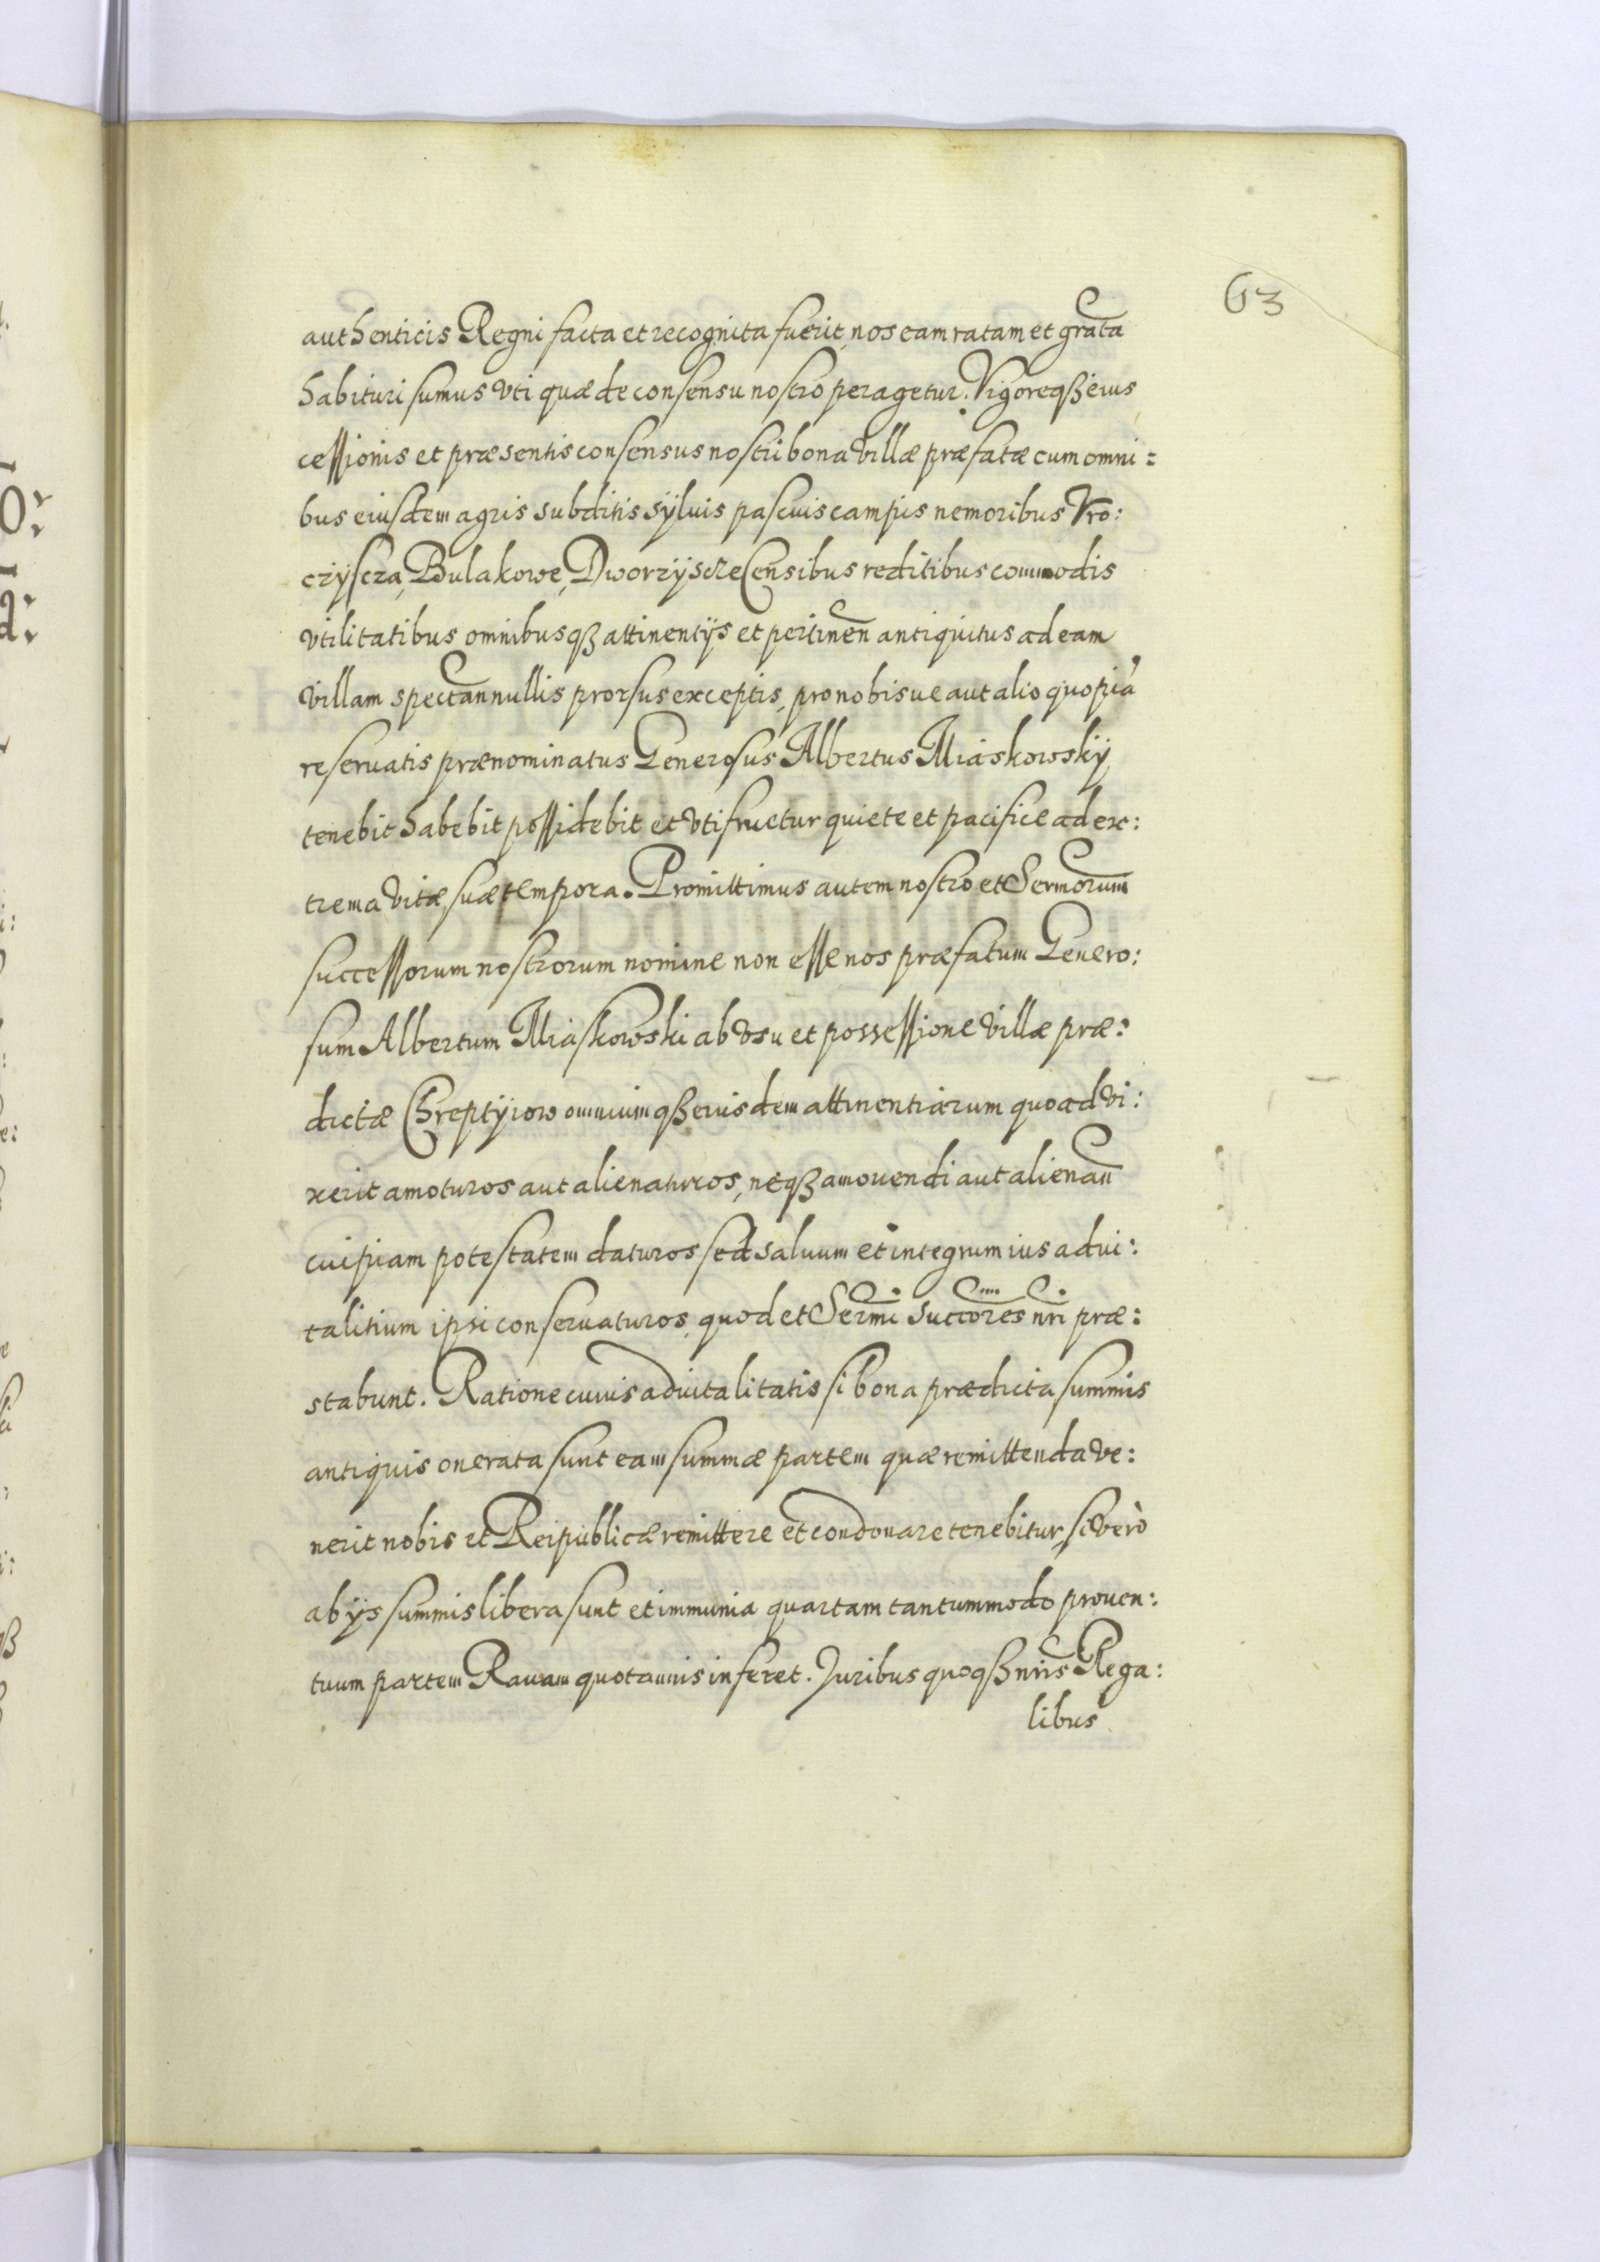 63
authenticis Regni facta et recognita fuerit, nos eam ratam et grata
habituri sumus vti quæ de consensu nostro peragetur. Vigoreqß eius
cessionis et præsentis consensus nostri bona villæ præfatæ cum omni:
bus eiusdem agris subditis sÿluis pascuis campis nemoribus Vro:
czÿscza, Bulakowe, Dworzÿscze Censibus reditibus commodis
vtilitatibus omnibusqß attinentÿs et pertinen antiquitus ad eam
villam spectan nullis prorsus exceptis, pro nobisue aut alio quopiã
reseruatis prænominatus Generosus Albertus Miaskowskÿ
tenebit habebit possidebit et vtifructur quiete et pacifice ad ex:
trema vitæ suæ tempora. Promittimus autem nostro et Sermorum
successorum nostrorum nomine non esse nos præfatum Genero:
sum Albertum Miaskowski ab vsu et possessione villæ præ:
dictæ Chreptÿiow omniumqß eiusdem attinentiarum quoad vi:
xerit amoturos aut alienaturos, neqß amouendi aut alienan
cuipiam potestatem daturos sed saluum et integrum ius adui:
talitium ipsi conseruaturos, quod et Sermi succores nri præ:
stabunt. Ratione cuius aduitalitatis si bona prædicta summis
antiquis onerata sunt eam summæ partem quæ remittenda ve:
nerit nobis et Reipublicæ remittere et condonare tenebitur, si verò
ab ÿs summis libera sunt et immunia quartam tantummodo prouen:
tuum partem Rauam quotannis inferet. Juribus quoqß nris Rega:
libus